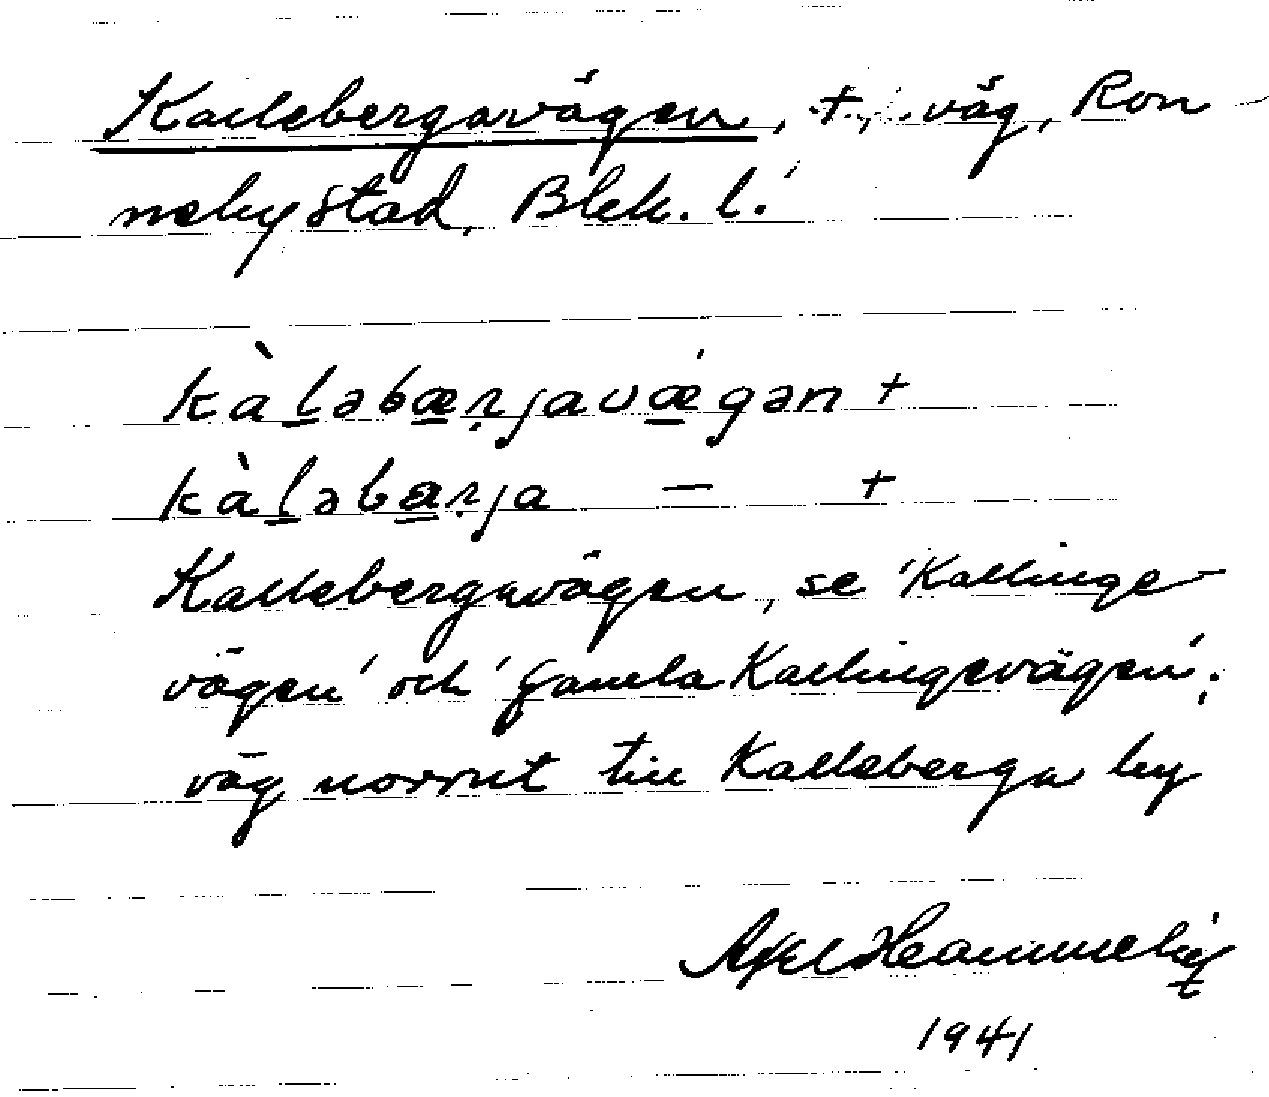 Kallebergavägen, †, väg, Ron-
neby stad, Blek. l.
kàlǝbærjavǽgǝn +
kàlǝbarja — +
Kallebergavägen, se 'Kallinge-
vägen' och 'Gamla Kallingevägen';
väg norrut till Kalleberga by
Axel
1941